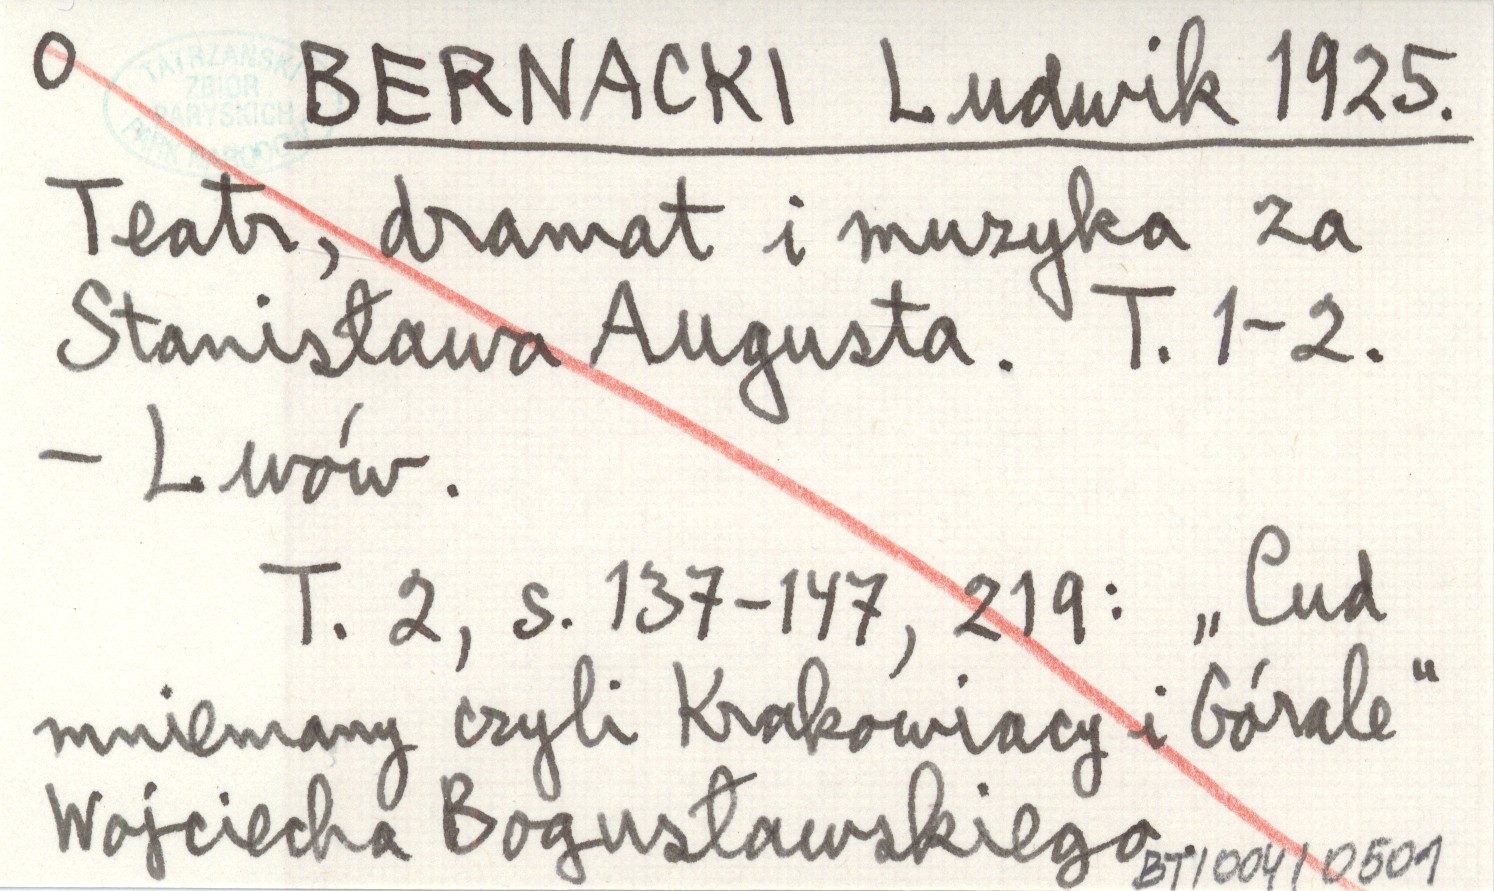 O BERNACKI Ludwik 1925.
TATRZAŃSKI
ZBIÓR
PARYSKICH
PARK NARODOWY
Teatr, dramat i muzyka za
Stanisława Augusta. T. 1-2.
- Lwów.
T. 2, s. 137-147, 219: „Cud
mniemany czyli Krakowiacy i Górale"
Wojciecha Bogusławskiego.
BT/004/0501